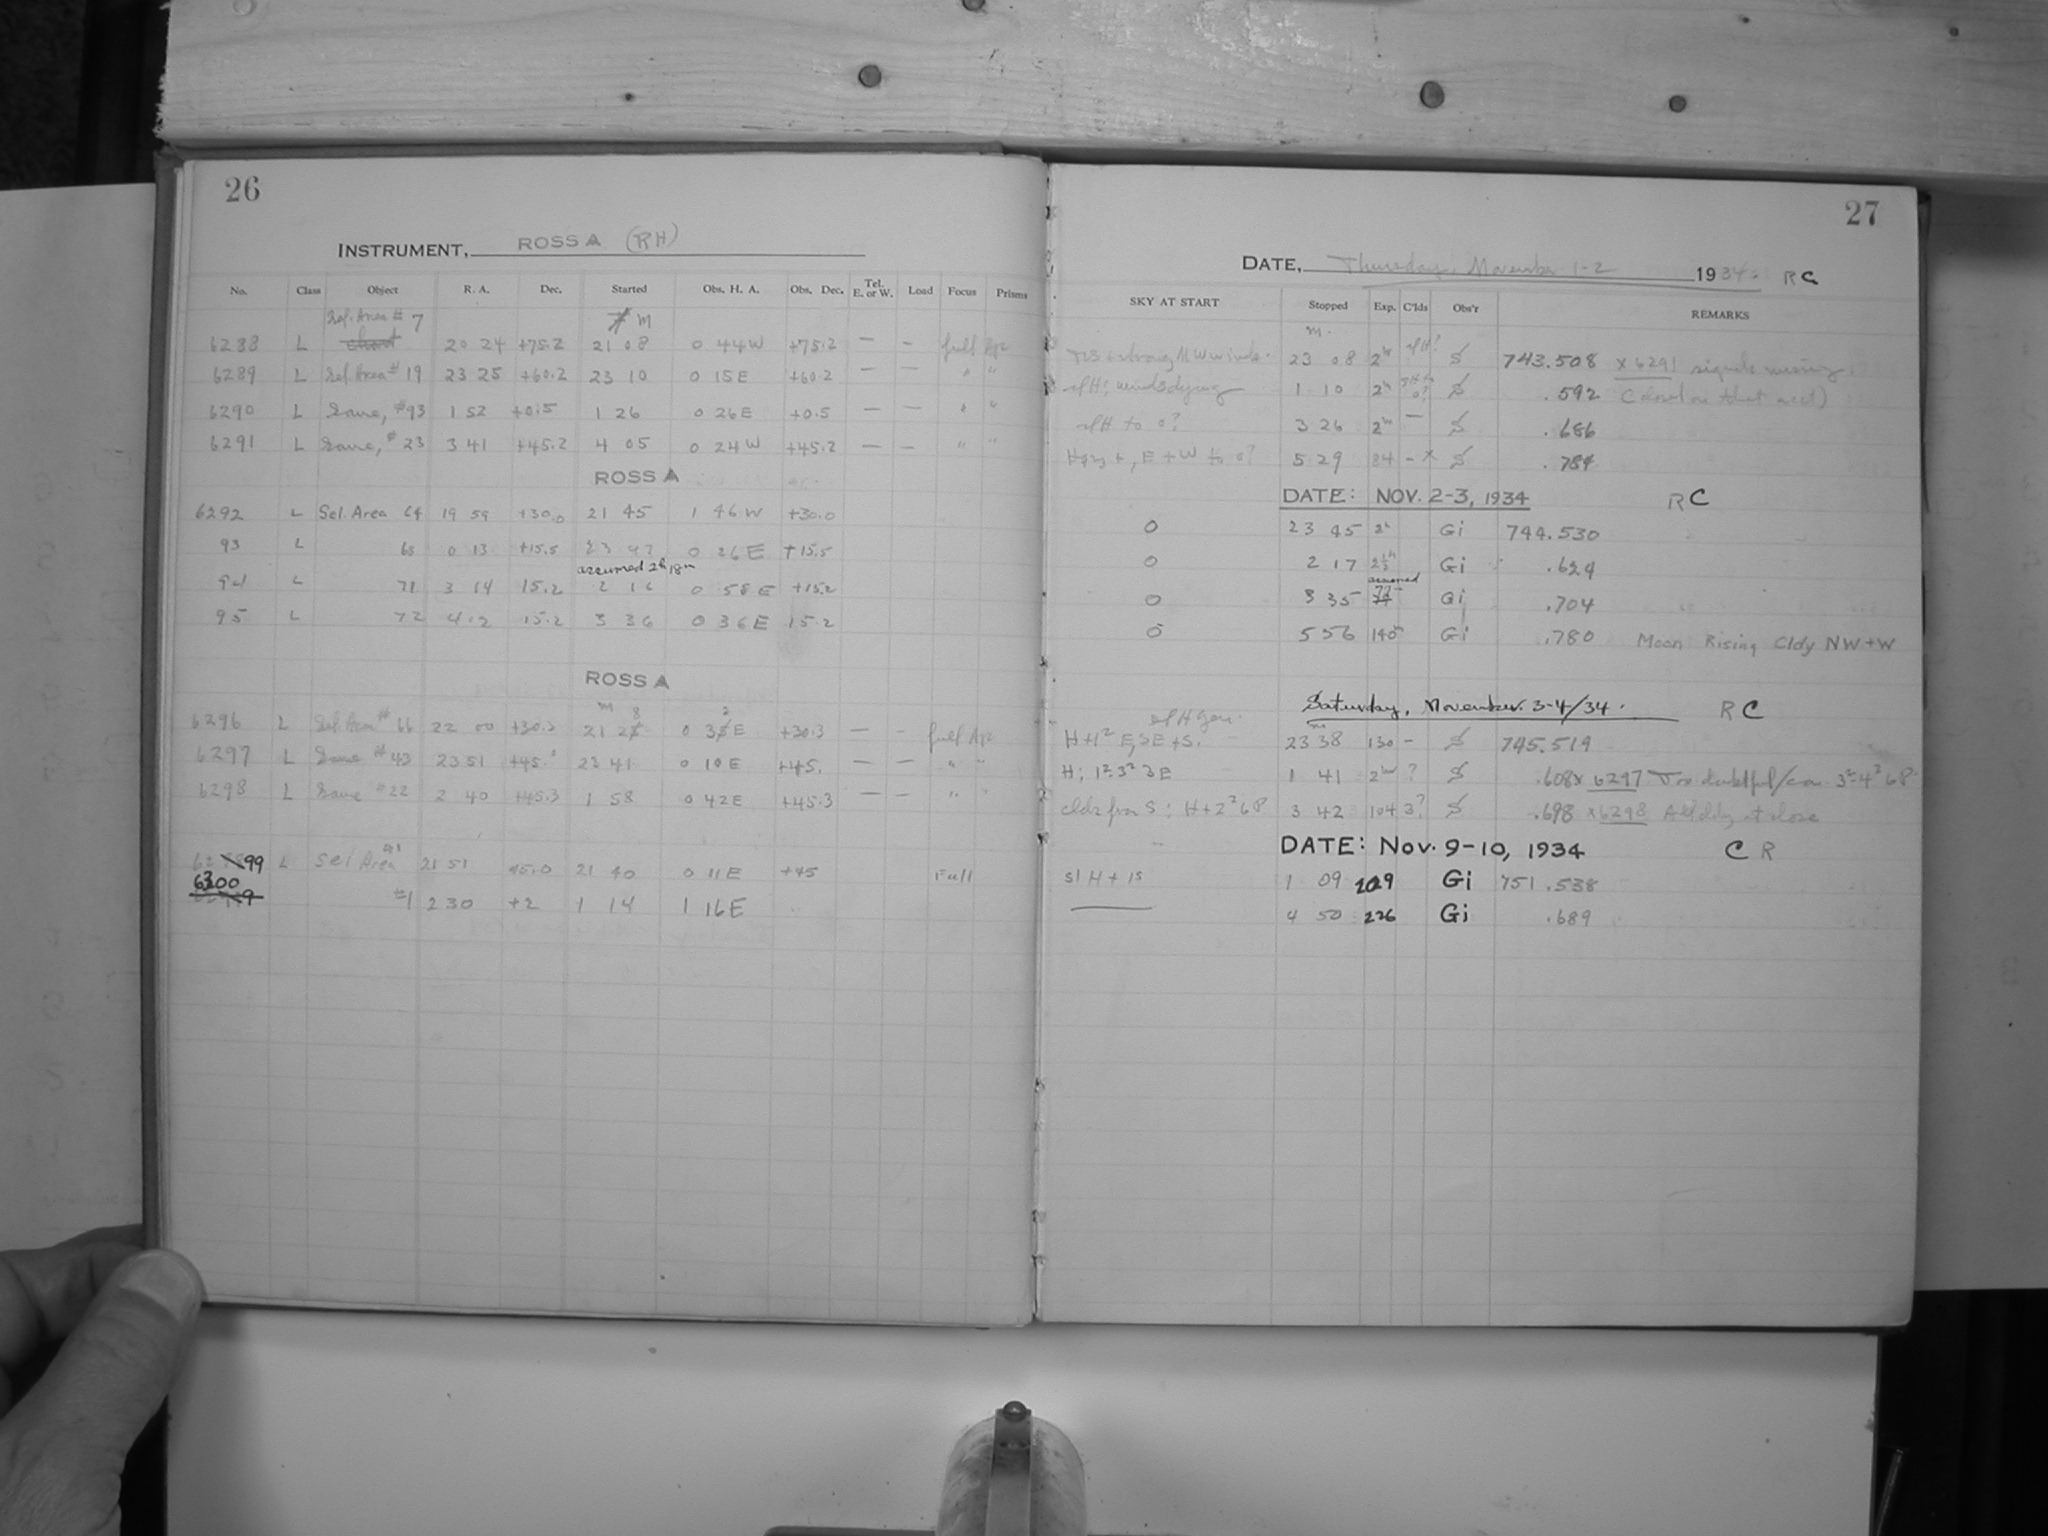 26
INSTRUMENT, ROSS A (RH)
No. Class Object R. A. Dec. Started Obs. H. A. Obs. Dec. Tel. E. or W. Load Focus Prisms
Sel. Area # 7 m
6288 L 20 24 +75.2 21 08 0 44W +75.2 — – full Ap
6289 L Sel. Area # 19 23 25 +60.2 23 10 0 15E +60.2 — – " "
6290 L Same, #93 1 52 +0.5 1 26 0 26E +0.5 — — " "
6291 L Same, # 23 3 41 +45.2 4 05 0 24W +45.2 — — " "
ROSS A
6292 L Sel. Area 64 19 59 +30.0 21 45 1 46W +30.0
93 L 68 0 13 +15.5 23 47 0 26E +15.5
assumed 2h 18m
94 L 71 3 14 15.2 2 16 0 58E +15.2
95 L 72 4 12 15.2 3 36 0 36E 15.2
ROSS A
m 8 2
6296 L Sel. Area # 66 22 00 +30.3 21 2 0 3 E +30.3 — — full Ap
6297 L Same #43 23 51 +45. 23 41 0 10E +45. — — " "
6298 L Same #22 2 40 +45.3 1 58 0 42E +45.3 — — " "
99 L Sel Area 41 21 51 45.0 21 40 0 11E +45 Full
6300 #1 2 30 +2 1 14 1 16E
27
DATE, Thursday, November 1-2 1934. RC
SKY AT START Stopped Exp. C'lds Obs'r REMARKS
m. slH?
strong NW winds. 23 08 2h S 743.508 x 6291 signals missing
slH; winds dying 1 10 2h S .592 (Clouds on that acct)
slH to 0? 3 26 2h — S .686
E + W to 0? 5 29 84 – x S .784
DATE: NOV. 2-3, 1934 RC
0 23 45 2h Gi 744.530
0 2 17 2½h Gi .624
assumed
0 3 35 77 Gi .704
0 5 56 140 Gi .780 Moon Rising Cldy NW+W
Saturday, November 3-4/34. RC
slH gen.
H+1² E, SE+S. 23 38 130 – S 745.519
H; 1²-3² SE 1 41 2h ? S .608 x 6297 Too doubtful/con 3²-4² 68
cldz from S; H+2² 68 3 42 104 3? S .698 x 6298 All cldy at close
DATE: Nov. 9-10, 1934 CR
sl H + 1s 1 09 209 Gi 751.538
4 50 226 Gi .689